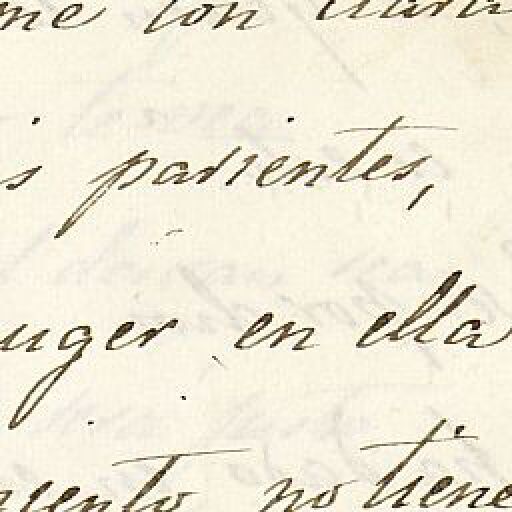 me con
s parientes,
uger en ella
miento no tiene